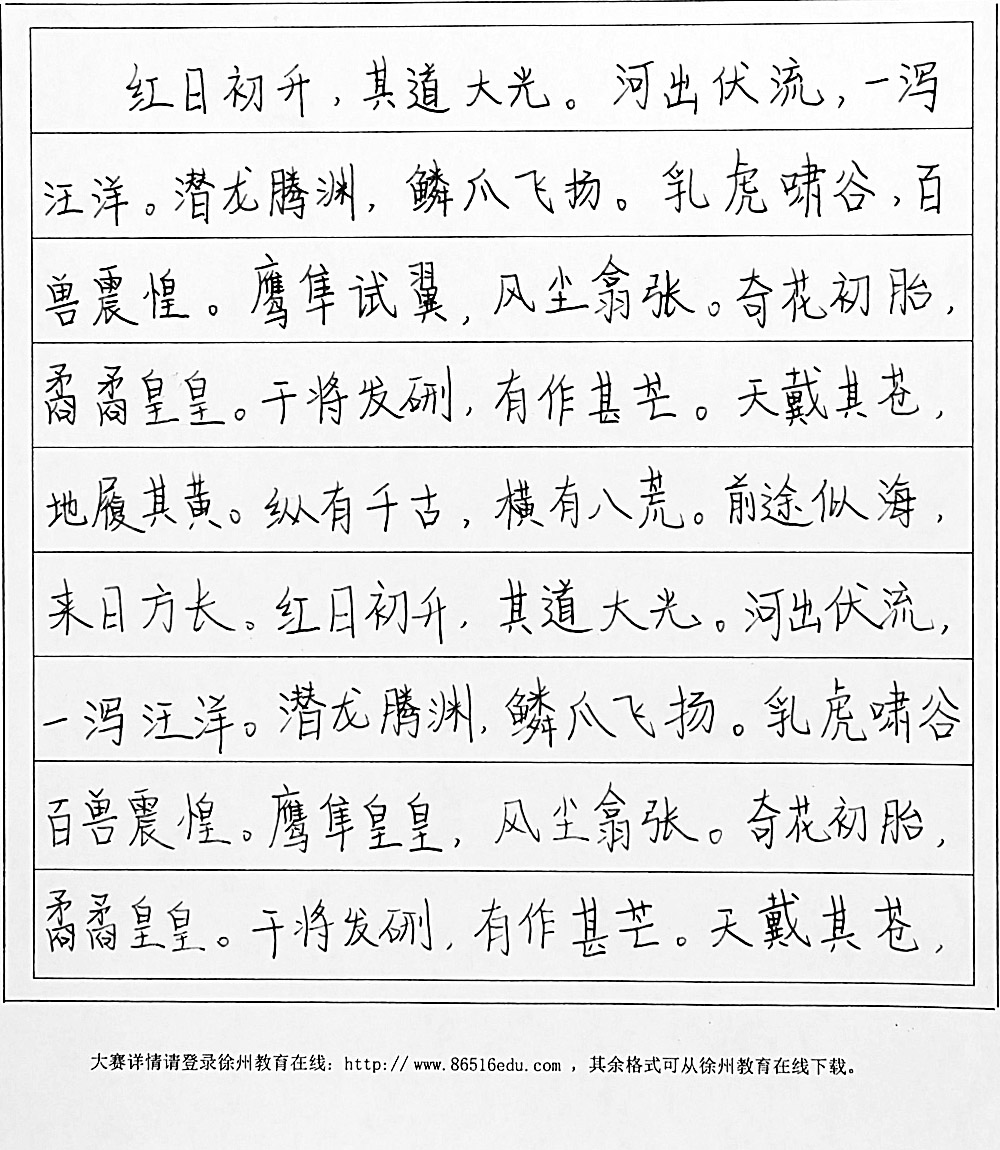 红日初升，其道大光。河出伏流，一泻
汪洋。潜龙腾渊，鳞爪飞扬。乳虎啸谷，百
兽震惶。鹰隼试翼，风尘翕张。奇花初胎，
矞矞皇皇。干将发硎，有作其芒。天戴其苍，
地履其黄。纵有千古，横有八荒。前途似海，
来日方长。红日初升，其道大光。河出伏流，
一泻汪洋。潜龙腾渊，鳞爪飞扬。乳虎啸谷
百兽震惶。鹰隼皇皇，风尘翕张。奇花初胎，
矞矞皇皇。干将发硎，有作甚芒。天戴其苍，
大赛详情请登录徐州教育在线：http://www.86516edu.com，其余格式可从徐州教育在线下载。